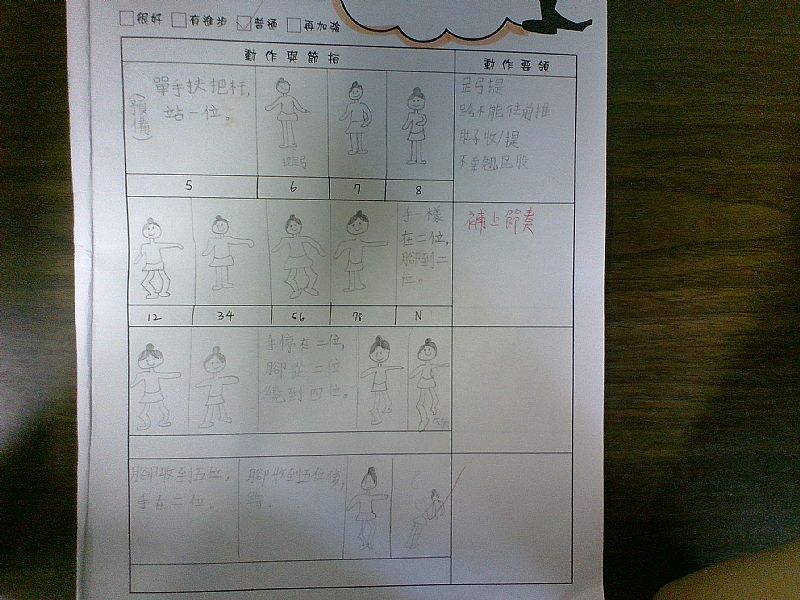 很好 有進步 普通 再加強
動作與節拍
動作要領
單手扶把杆,
站一位。
(預備)
足弓提
不能往前推
肚子收/提
不要翹屁股
5 6 7 8
手一樣
在二位,
腳到二
位。
補上節奏
12 34 56 78 N
手停在二位,
腳從二位
繞到四位。
腳收到五位,
手在二位。
腳收到五位後,